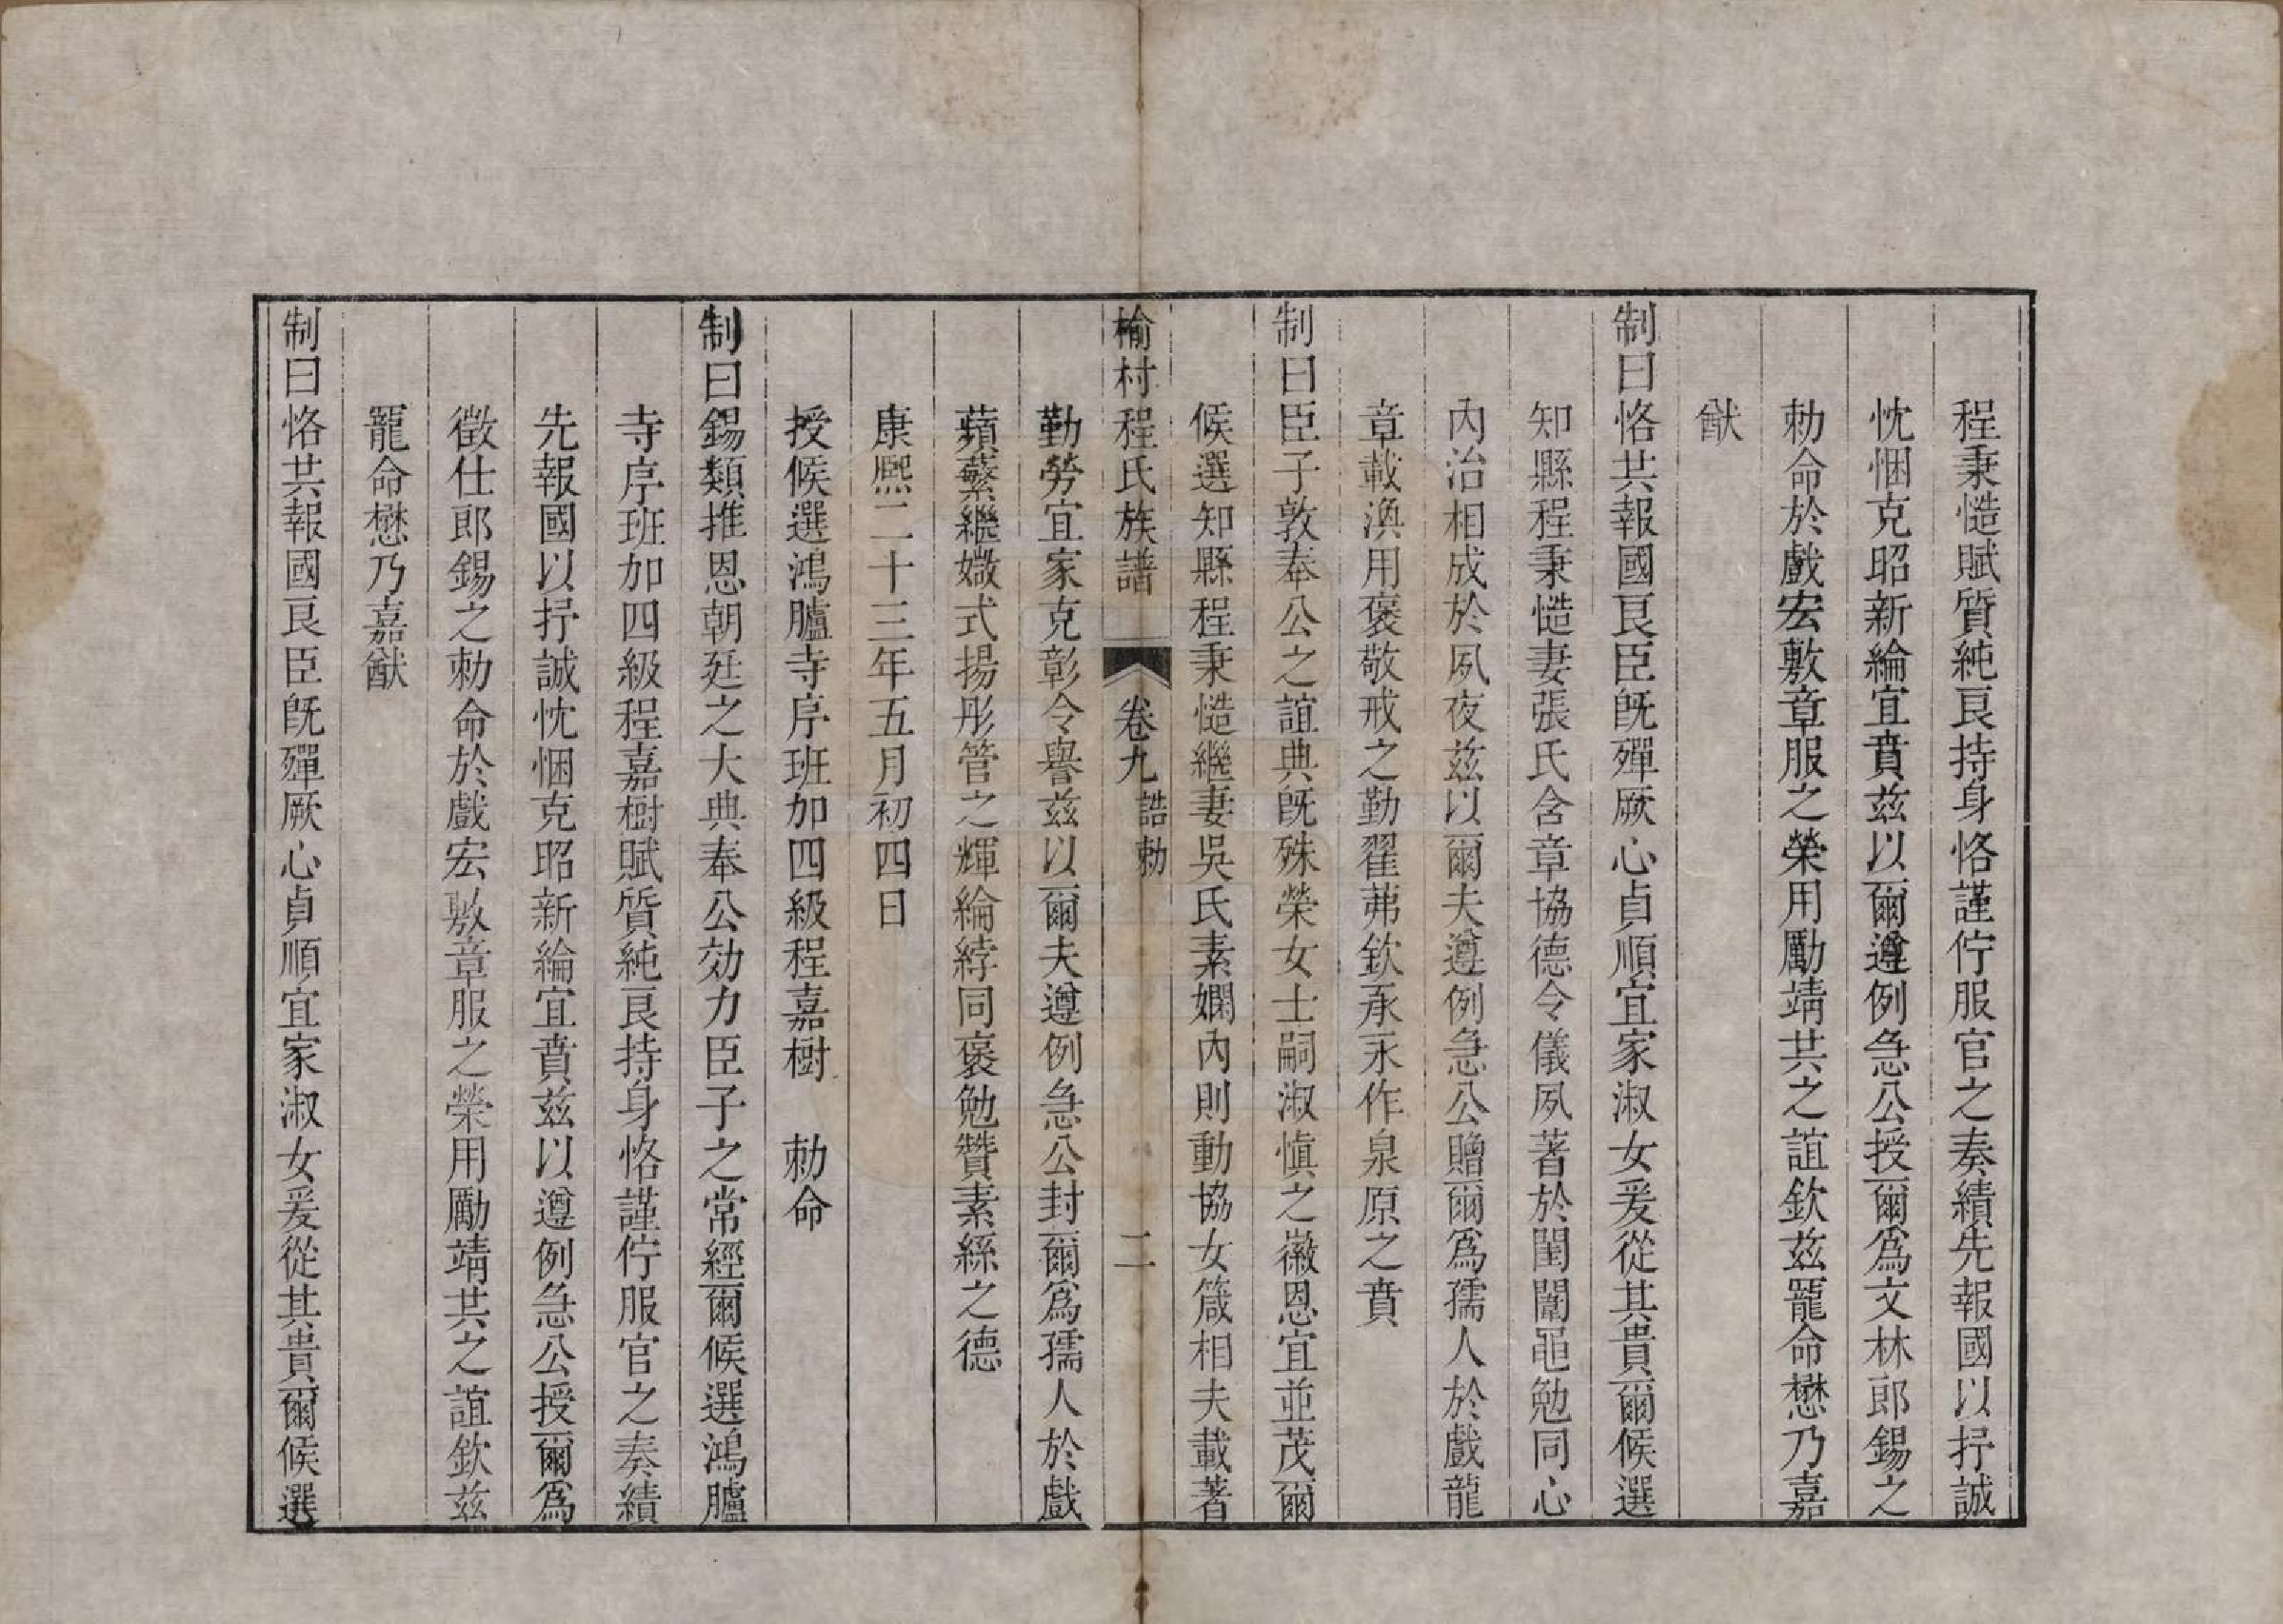 程秉慥賦質純良持身恪謹佇服官之奏績先報國以抒誠
忱悃克昭新綸宜賁茲以爾遵例急公授爾爲文林郎錫之
勅命於戲宏敷章服之榮用勵靖共之誼欽茲寵命懋乃嘉
猷
制曰恪共報國良臣旣殫厥心貞順宜家淑女爰從其貴爾候選
知縣程秉慥妻張氏含章協德令儀夙著於閨闈黽勉同心
內治相成於夙夜茲以爾夫遵例急公贈爾爲孺人於戲龍
章載渙用褒敬戒之勤翟茀欽承永作泉原之賁
制曰臣子敦奉公之誼典旣殊榮女士嗣淑慎之徽恩宜並茂爾
候選知縣程秉慥繼妻吳氏素嫻內則動協女箴相夫載著
榆村程氏族譜 卷九 誥勅 二
勤勞宜家克彰令譽茲以爾夫遵例急公封爾爲孺人於戲
蘋蘩繼媺式揚彤管之輝綸綍同褒勉贊素絲之德
康熙二十三年五月初四日
授候選鴻臚寺序班加四級程嘉樹 勅命
制曰錫類推恩朝廷之大典奉公効力臣子之常經爾候選鴻臚
寺序班加四級程嘉樹賦質純良持身恪謹佇服官之奏績
先報國以抒誠忱悃克昭新綸宜賁茲以遵例急公授爾爲
徵仕郎錫之勅命於戲宏敷章服之榮用勵靖共之誼欽茲
寵命懋乃嘉猷
制曰恪共報國良臣旣殫厥心貞順宜家淑女爰從其貴爾候選